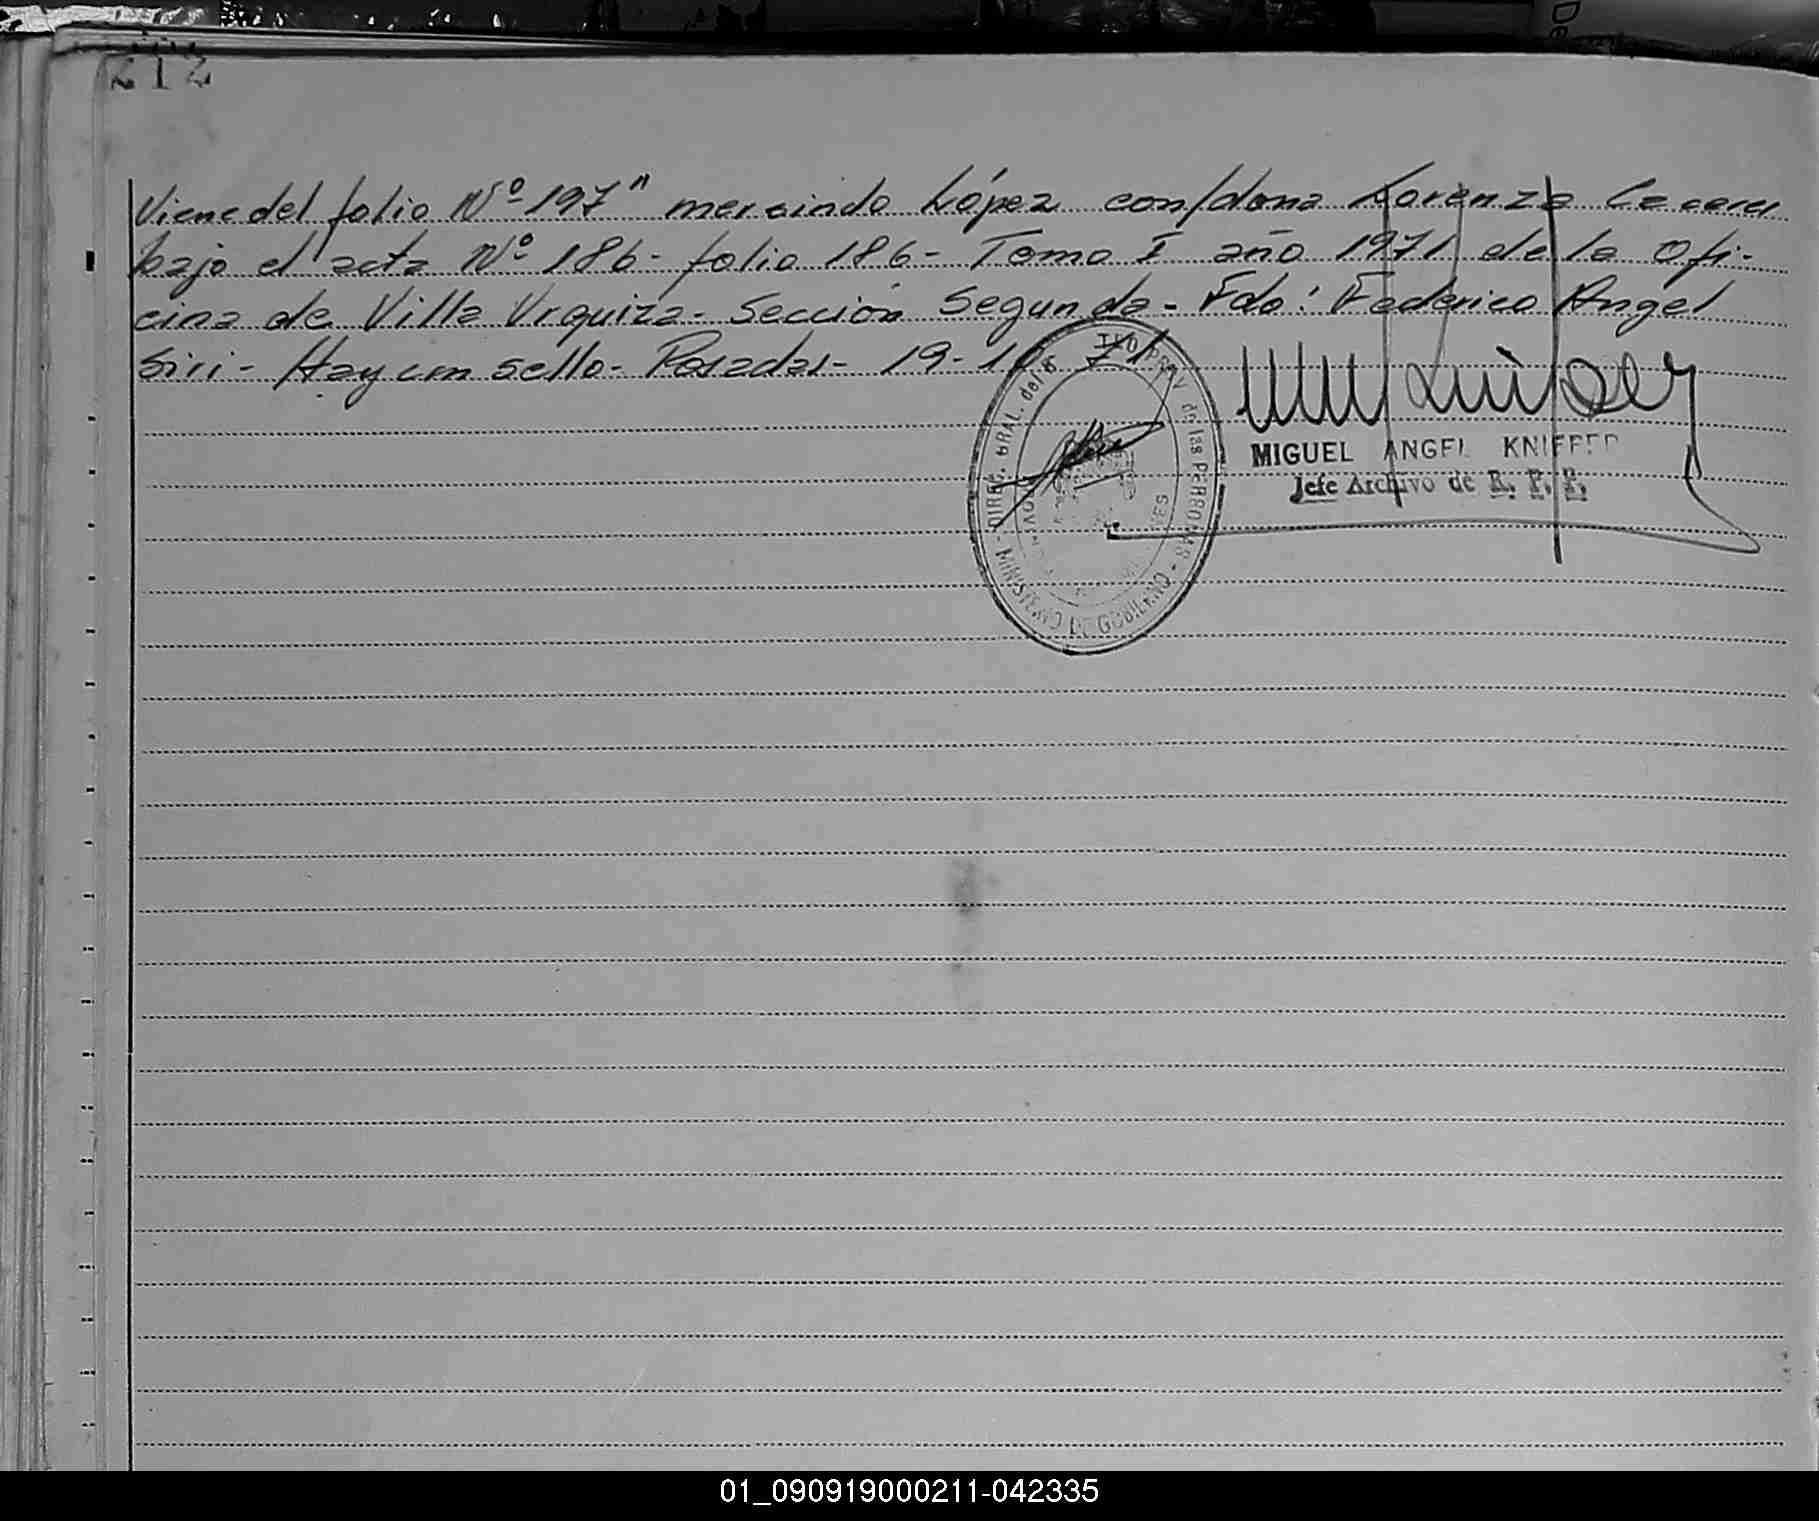 212
Viene del folio Nº 197" mersindo López con/doña Lorenza Caceres
bajo el acta Nº 186- folio 186- Tomo I año 1971 de la Ofi-
cina de Villa Urquiza- Sección Segunda- Fdo: Federico Angel
Siri- Hay un sello- Posadas- 19-1 71
DIREC. GRAL. del R. PROV. de las PERSONAS - MINISTERIO DE GOBIERNO -
MIGUEL ANGEL KNIEFER
Jefe Archivo de R. P. P.
01_090919000211-042335